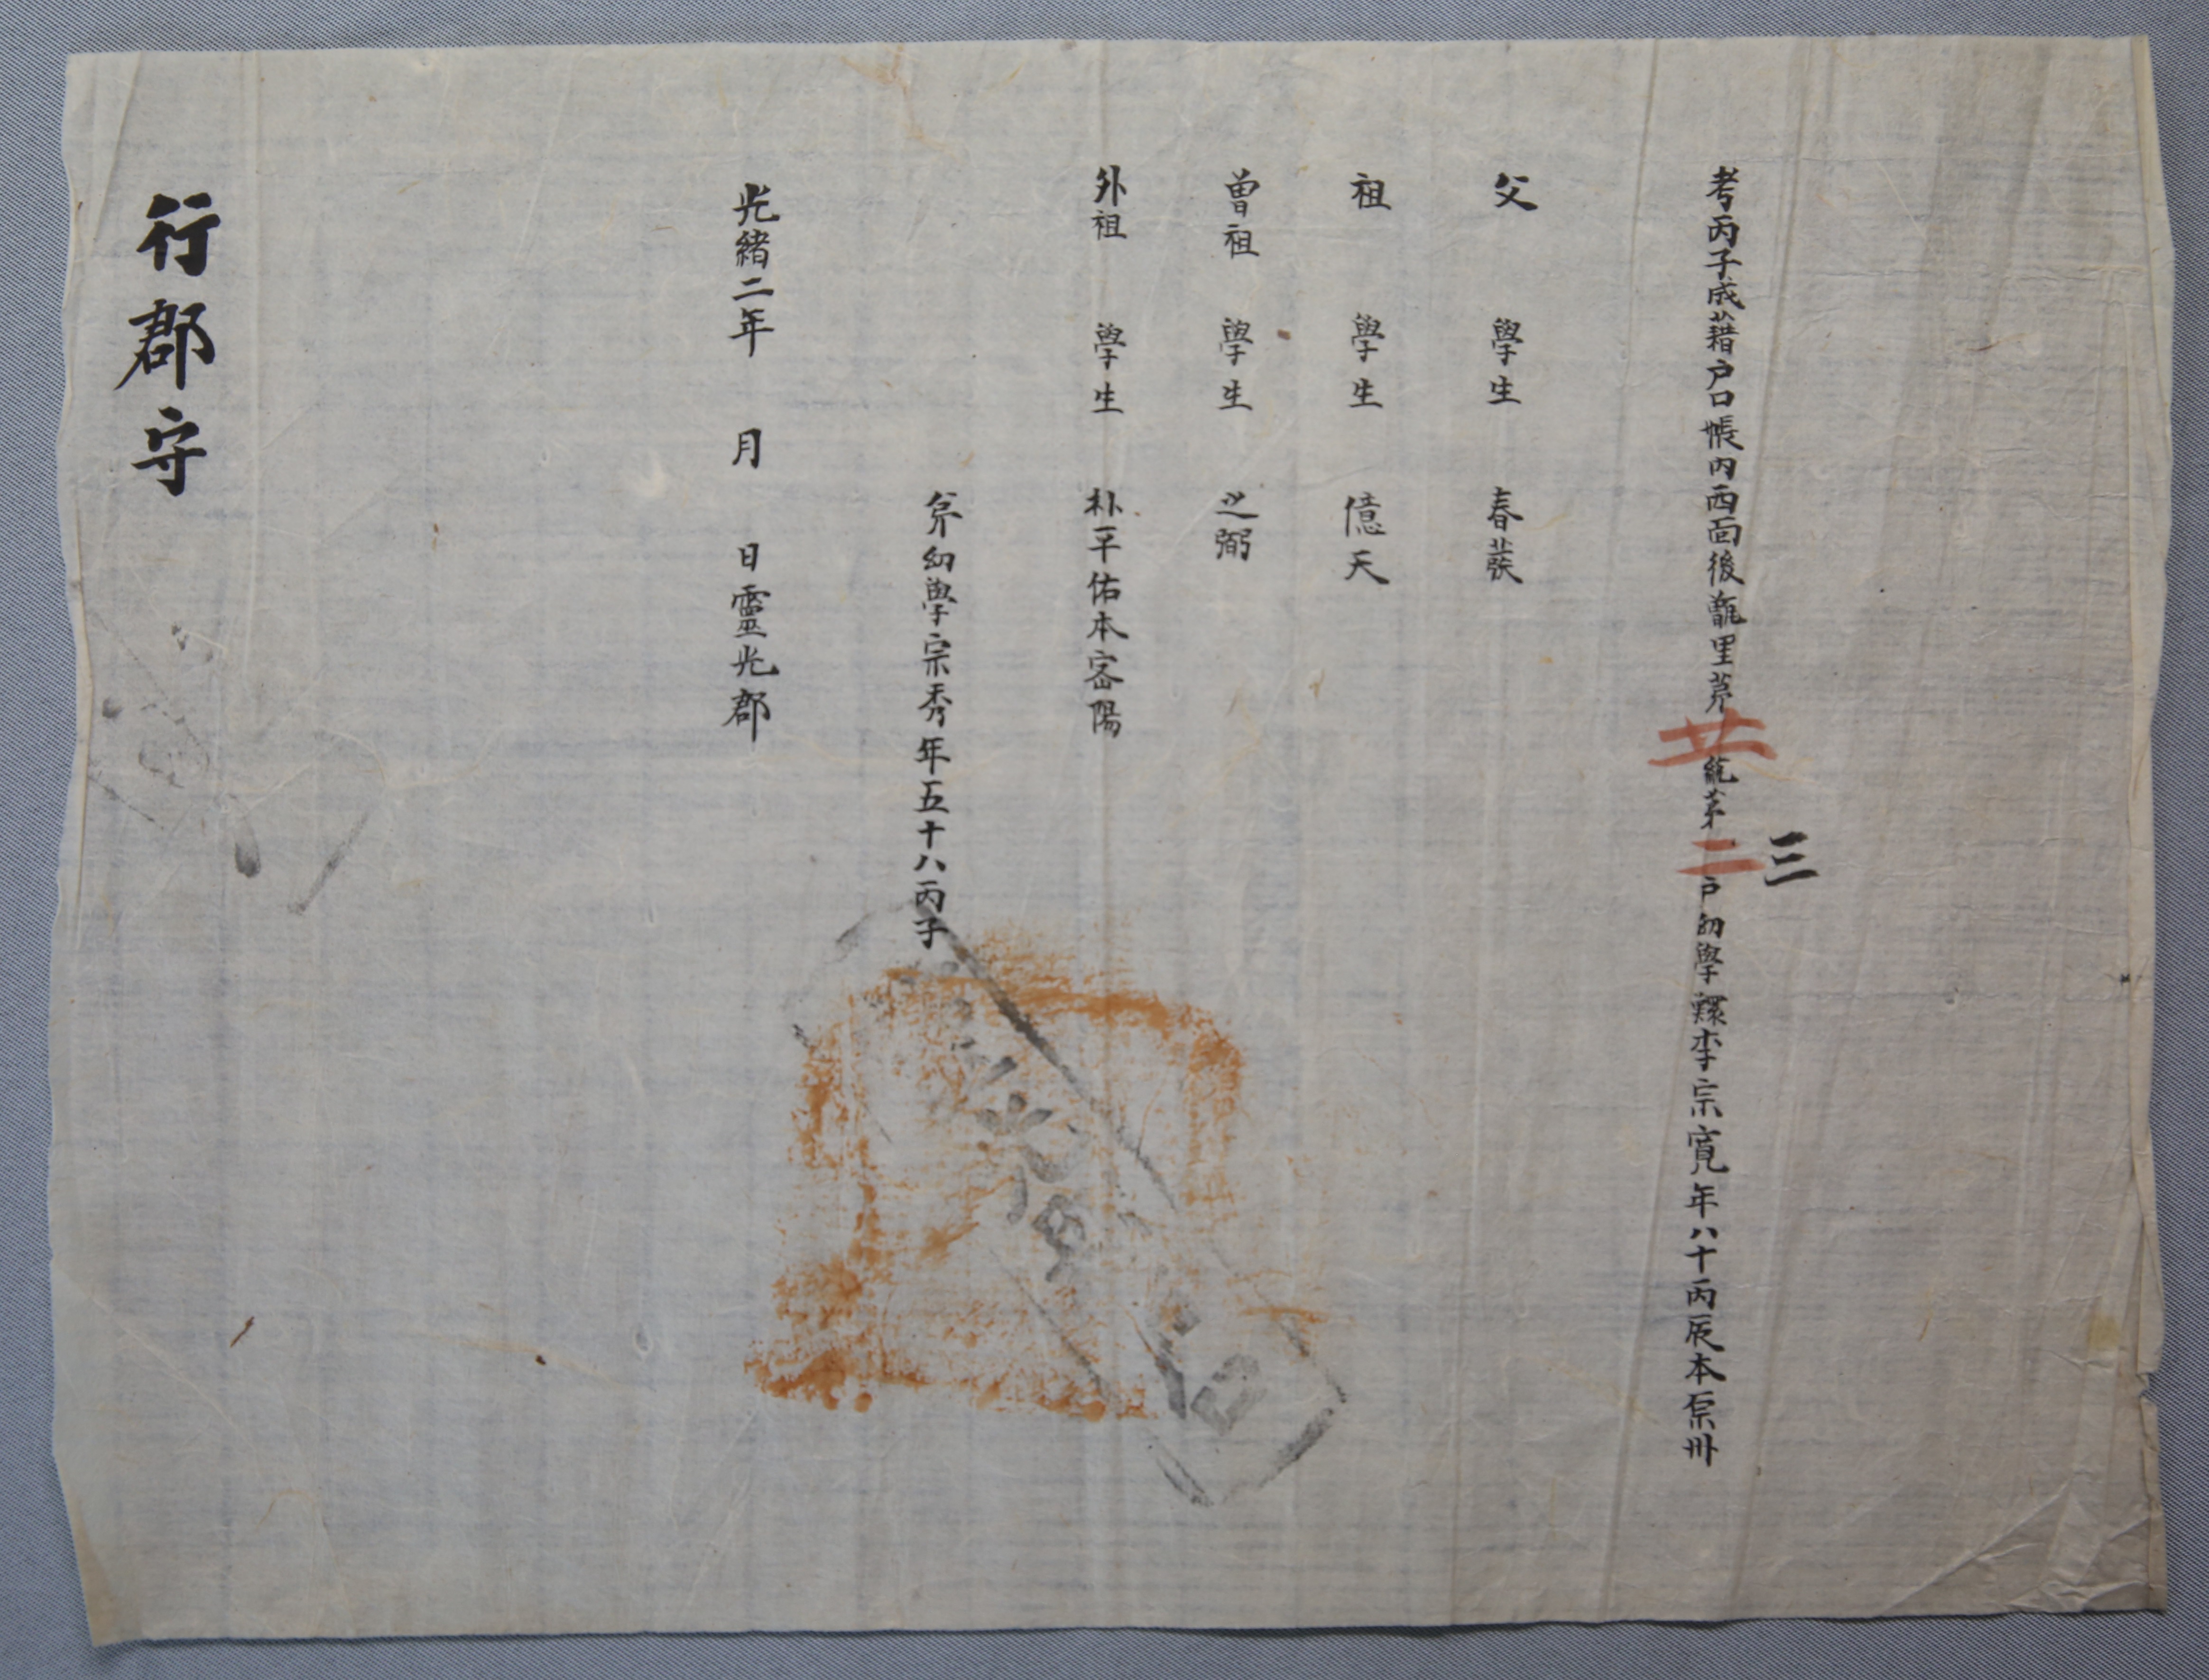 考丙子成籍户口帳内西面後甑里苐廿統苐二户幼學鰥李宗寬年八十丙辰本原州
三
父 學生 春裴
祖 學生 億天
曽祖 學生 之弼
外祖 學生 朴平佑本宻陽
苐幼學宗秀年五十八丙子
光緒二年 月 日靈光郡
行郡守